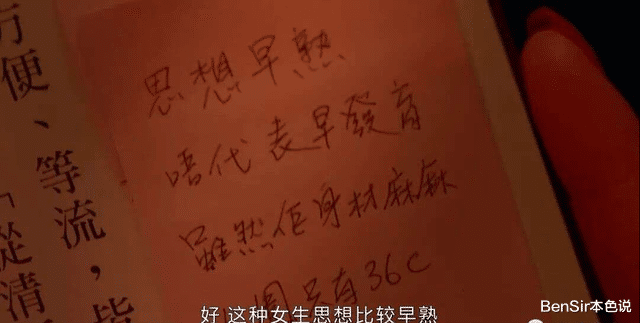 方便、等流，
「從清
思想早熟
唔代表早發育
雖然佢身材麻麻
圍只有36C
好 这种女生思想比较早熟
BenSir本色说